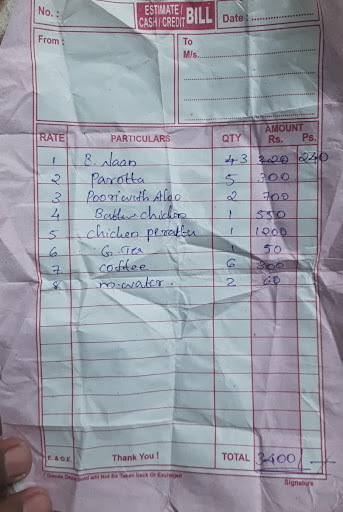 No. :
ESTIMATE /
CASH / CREDIT BILL
Date :
From :
To
M/s.
RATE PARTICULARS QTY AMOUNT
Rs. Ps.
1 B. Naan 3 240
2 Parotta 5 300
3 Poori with Aloo 2 700
4 Butter chicken 1 550
5 chicken perattu 1 1200
6 G. Tea 1 50
7 coffee 6 300
8 m.water. 2 60
E. & O.E. Thank You ! TOTAL 3400/-
Goods Once Sold will Not Be Taken Back Or Exchanged
Signature